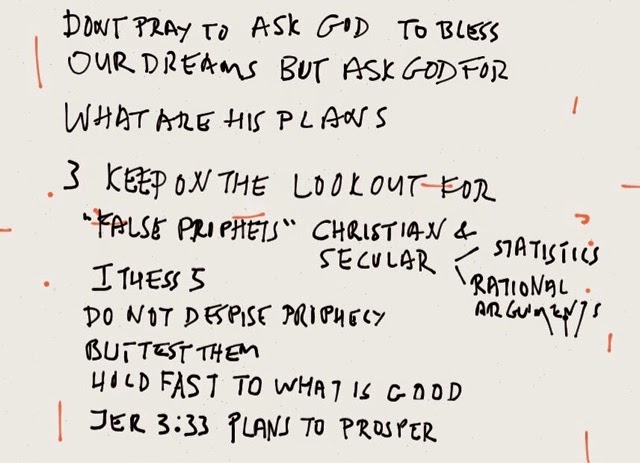 DONT PRAY TO ASK GOD TO BLESS
OUR DREAMS BUT ASK GOD FOR
WHAT ARE HIS PLANS
3 KEEP ON THE LOOKOUT FOR
"FALSE PROPHETS" CHRISTIAN &
SECULAR
STATISTICS
RATIONAL
ARGUMENTS
I THESS 5
DO NOT DESPISE PROPHECY
BUT TEST THEM
HOLD FAST TO WHAT IS GOOD
JER 3:33 PLANS TO PROSPER